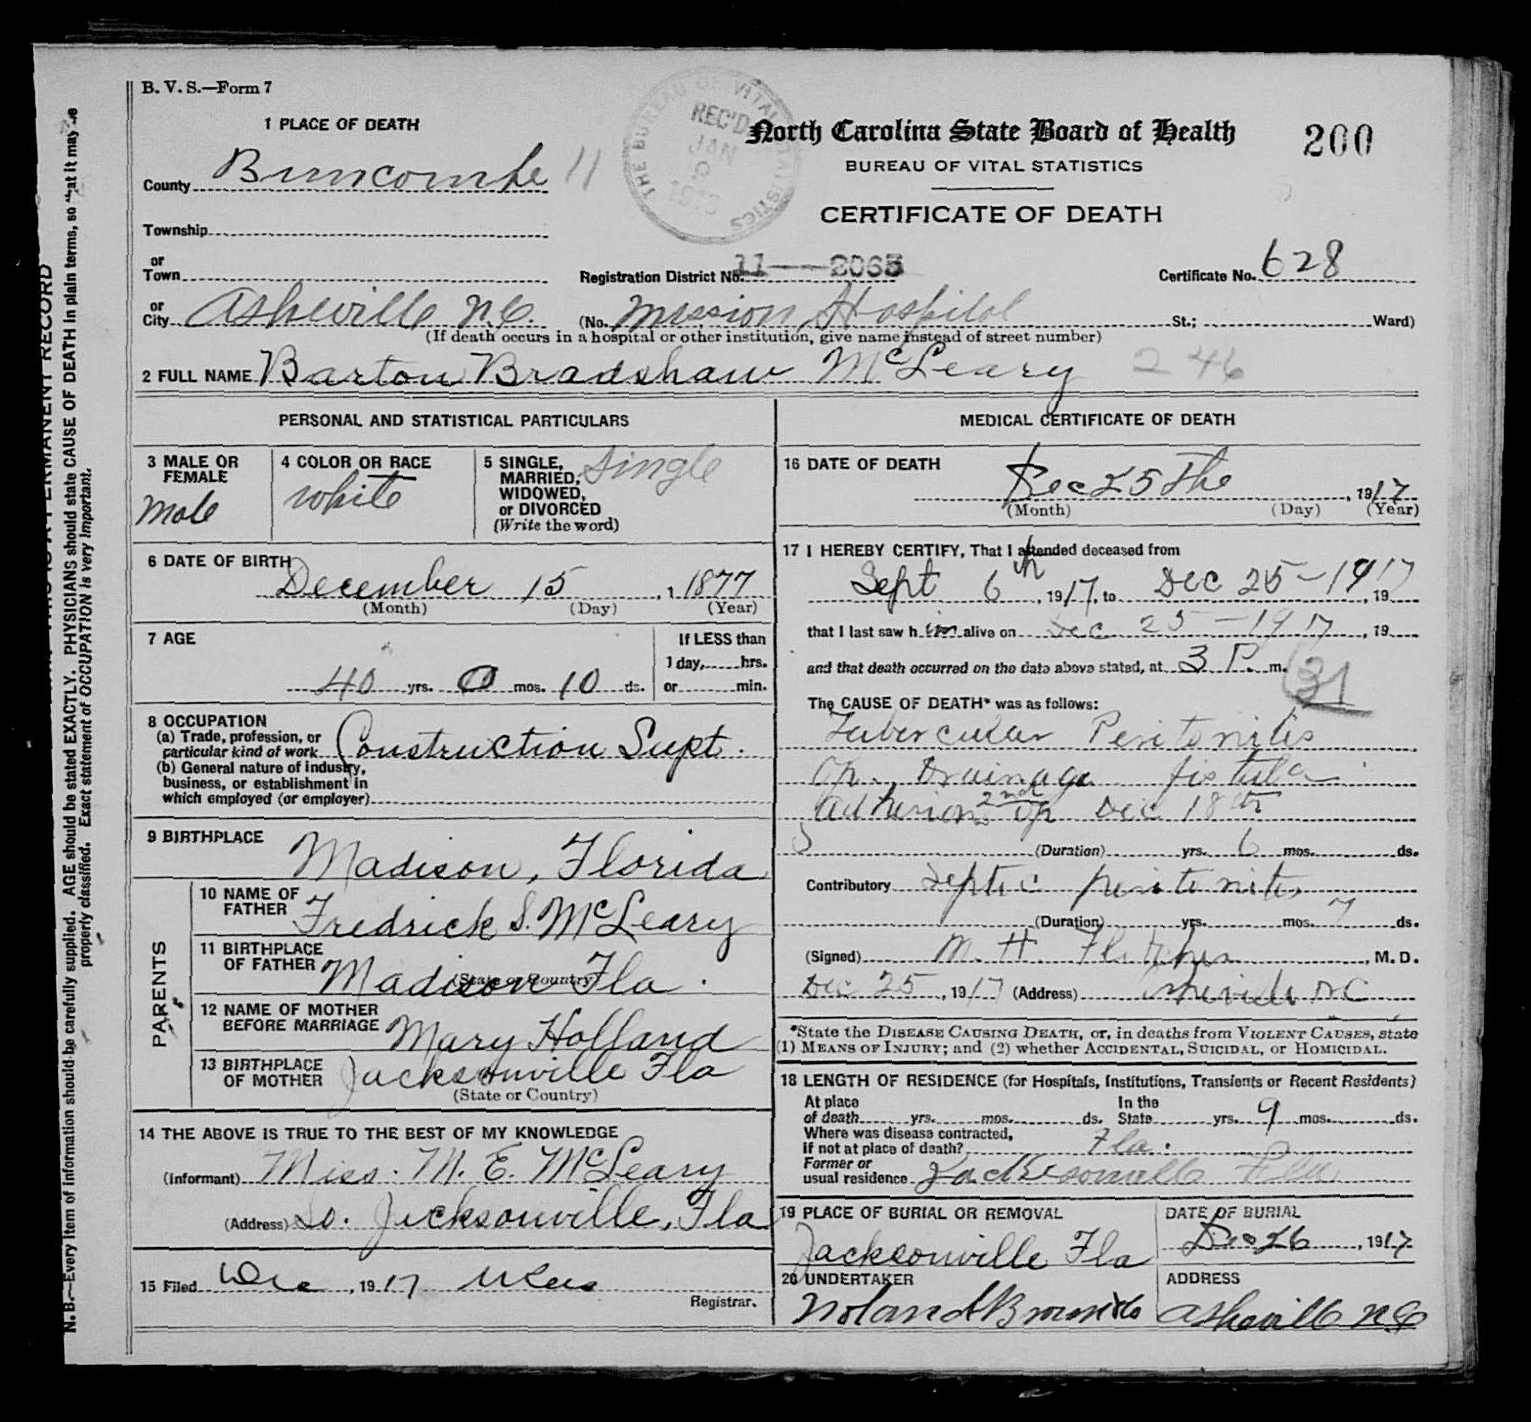 B. V. S.—Form 7
1 PLACE OF DEATH
North Carolina State Board of Health
200
BUREAU OF VITAL STATISTICS
CERTIFICATE OF DEATH
THE BUREAU OF VITAL STATISTICS
REC'D
JAN
County Buncombe 11
Township
or Town
Registration District No. 11—2065
Certificate No. 628
or City Asheville N.C. (No. Mission Hospital St.; Ward)
(If death occurs in a hospital or other institution, give name instead of street number)
2 FULL NAME Barton Bradshaw McLeary 246
PERSONAL AND STATISTICAL PARTICULARS
3 MALE OR FEMALE
Male
4 COLOR OR RACE
White
5 SINGLE, MARRIED, WIDOWED, or DIVORCED
(Write the word)
Single
6 DATE OF BIRTH
December 15, 1877
(Month) (Day) (Year)
7 AGE
40 yrs. 0 mos. 10 ds.
If LESS than
1 day, hrs.
or min.
8 OCCUPATION
(a) Trade, profession, or
particular kind of work Construction Supt.
(b) General nature of industry,
business, or establishment in
which employed (or employer)
9 BIRTHPLACE
Madison, Florida
PARENTS
10 NAME OF FATHER Fredrick S. McLeary
11 BIRTHPLACE OF FATHER Madison Fla.
(State or Country)
12 NAME OF MOTHER BEFORE MARRIAGE Mary Holland
13 BIRTHPLACE OF MOTHER Jacksonville Fla
(State or Country)
14 THE ABOVE IS TRUE TO THE BEST OF MY KNOWLEDGE
(Informant) Miss. M. E. McLeary
(Address) So. Jacksonville, Fla
15 Filed , 1917
Registrar.
MEDICAL CERTIFICATE OF DEATH
16 DATE OF DEATH
Dec 25 The, 1917
(Month) (Day) (Year)
17 I HEREBY CERTIFY, That I attended deceased from
Sept 6th, 1917, to Dec 25-1917, 19
that I last saw him alive on Dec 25-1917, 19
and that death occurred on the date above stated, at 3 P. m.
31
The CAUSE OF DEATH* was as follows:
Tubercular Peritonitis
Op. Drainage fistula
adhesions 2nd op Dec 18th
(Duration) yrs. 6 mos. ds.
Contributory Septic peritonitis
(Duration) yrs. mos. 7 ds.
(Signed) M. H. Fletcher, M. D.
Dec 25, 1917 (Address) Asheville N C
*State the DISEASE CAUSING DEATH, or, in deaths from VIOLENT CAUSES, state
(1) MEANS OF INJURY; and (2) whether ACCIDENTAL, SUICIDAL, or HOMICIDAL.
18 LENGTH OF RESIDENCE (for Hospitals, Institutions, Transients or Recent Residents)
At place of death yrs. mos. ds. In the State yrs. 9 mos. ds.
Where was disease contracted,
if not at place of death? Fla.
Former or
usual residence Jacksonville Fla
19 PLACE OF BURIAL OR REMOVAL
Jacksonville Fla
DATE OF BURIAL
Dec 26, 1917
20 UNDERTAKER
Noland Brown & Co
ADDRESS
Asheville N.C
N. B.—Every item of information should be carefully supplied. AGE should be stated EXACTLY. PHYSICIANS should state CAUSE OF DEATH in plain terms, so that it may be
properly classified. Exact statement of OCCUPATION is very important.
PERMANENT RECORD